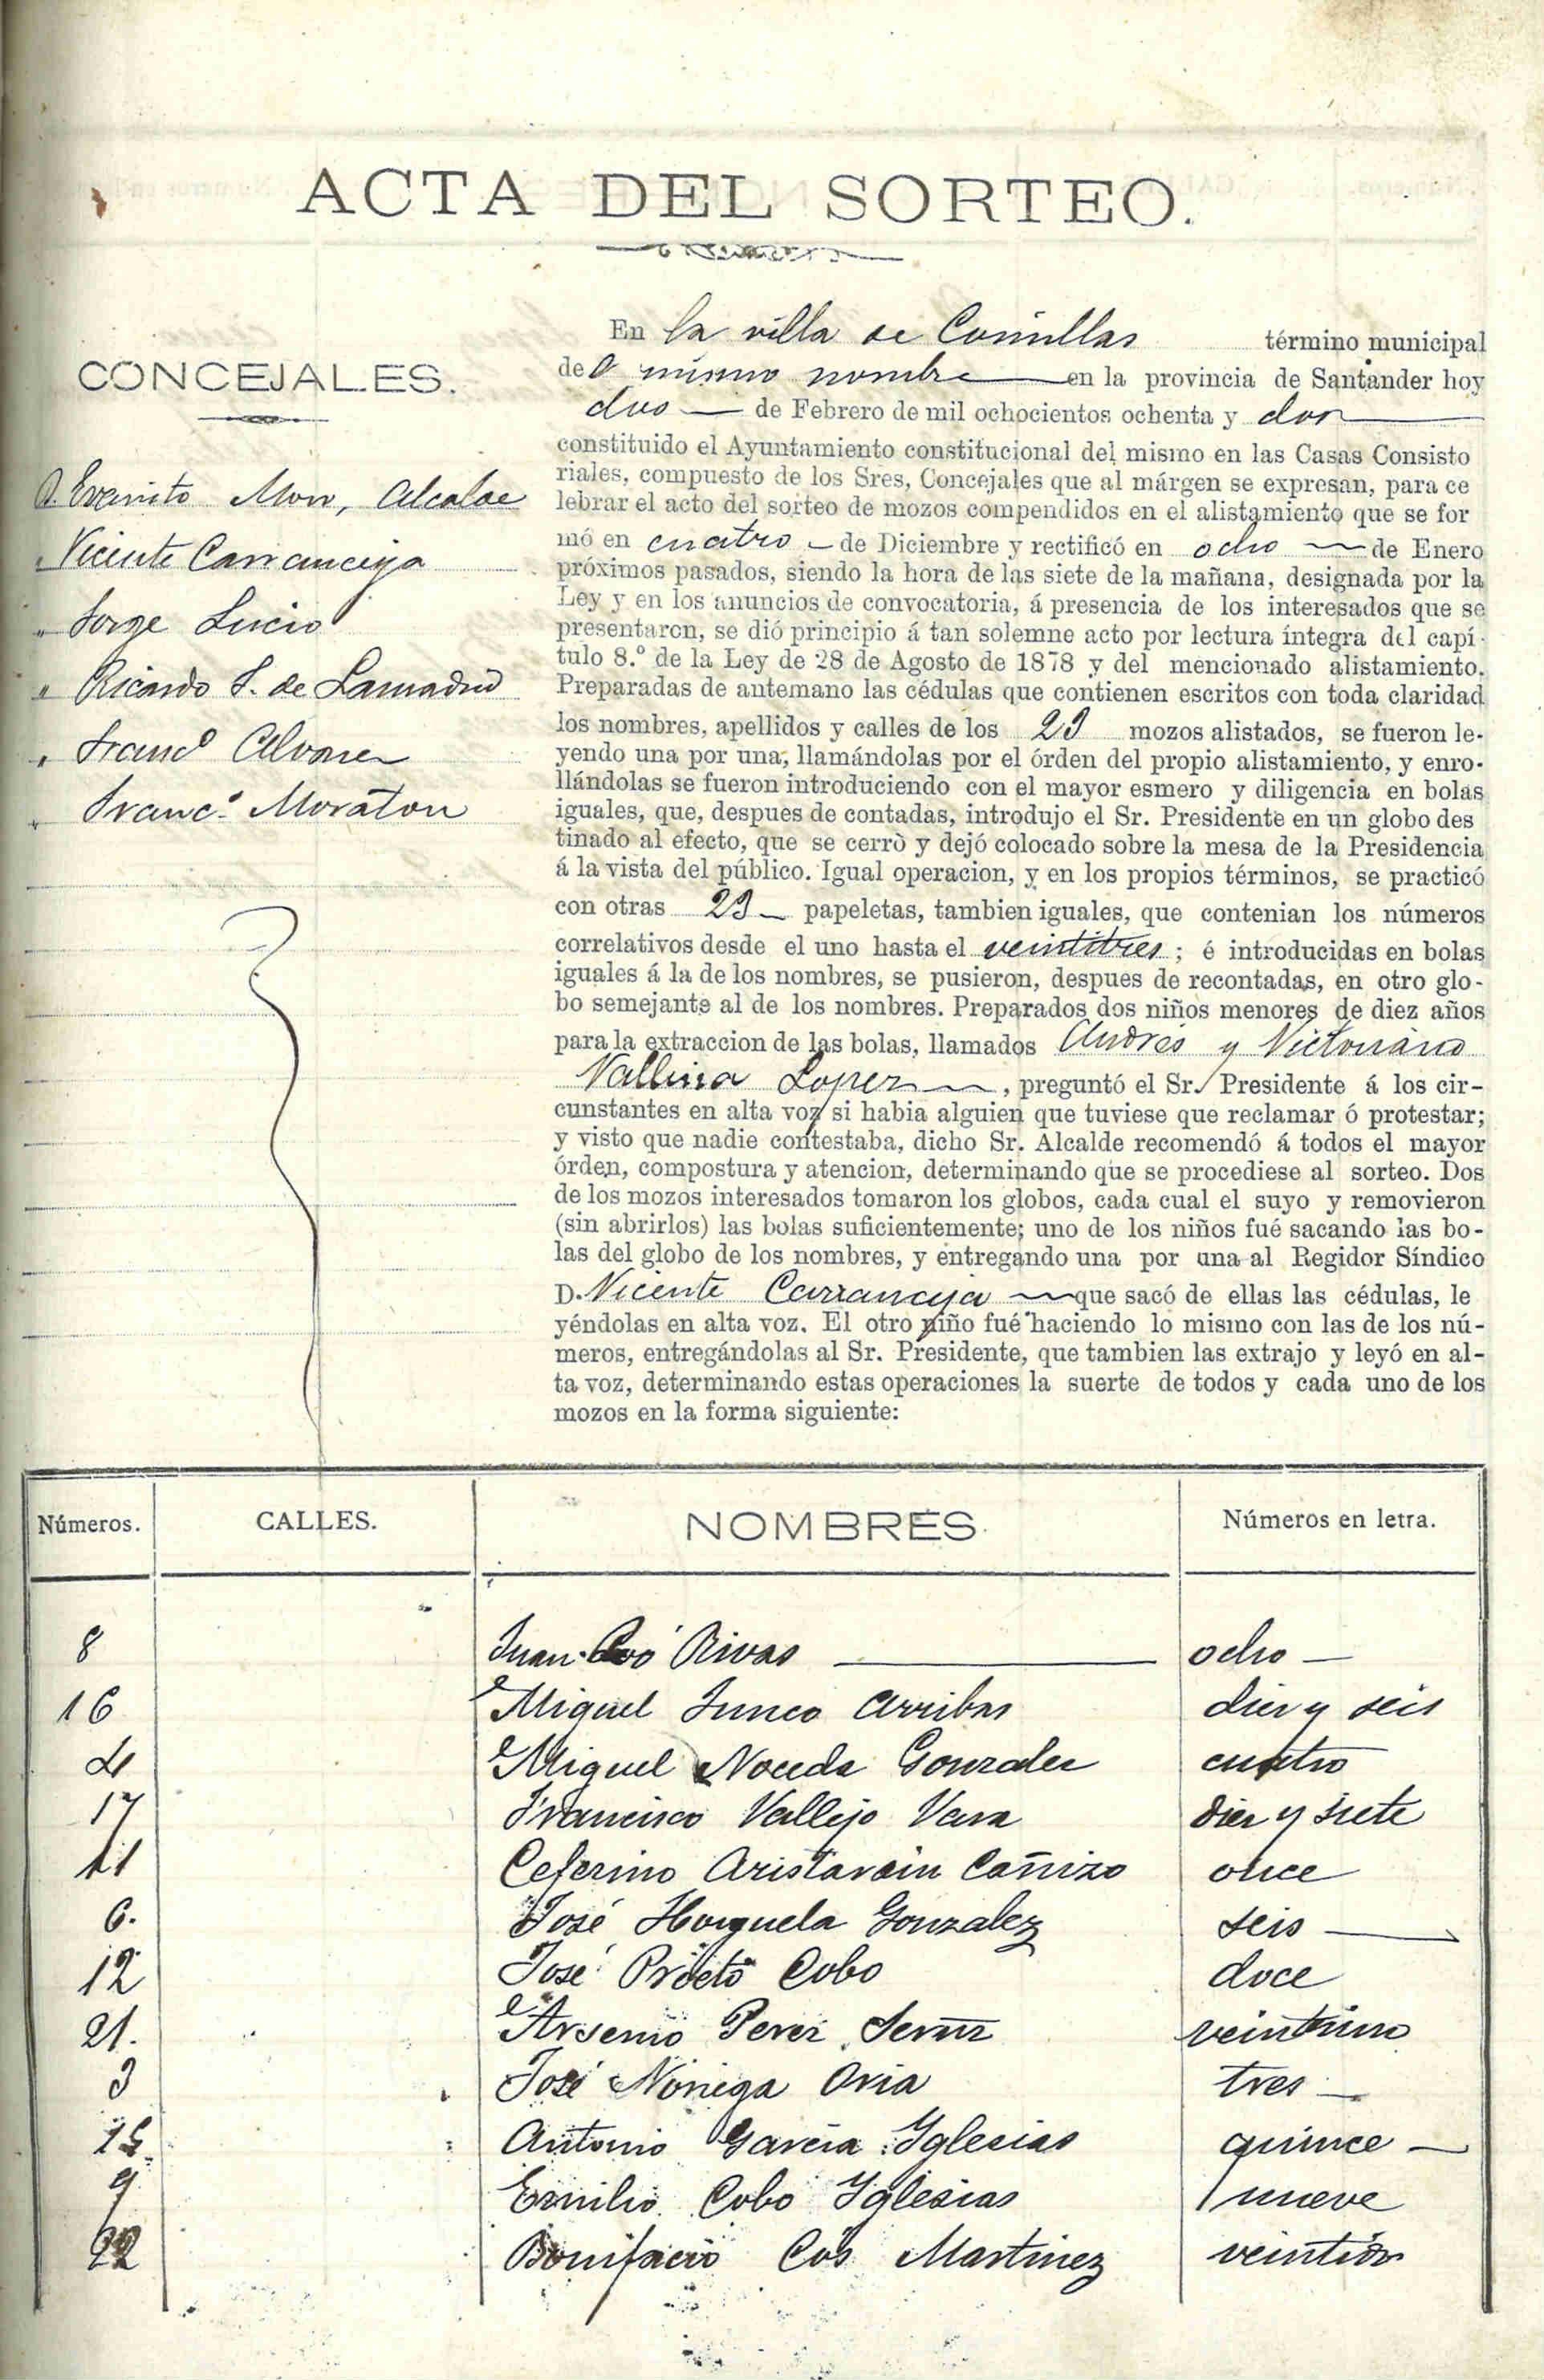 ACTA DEL SORTEO.
CONCEJALES.
D. Evaristo Mon, Alcalde
" Vicente Carranceja
" Jorge Lucio
" Ricardo S. de Lamadrid
" Francº Alvarez
" Francº Moraton
En la villa de Comillas término municipal
del mismo nombre en la provincia de Santander hoy
dos de Febrero de mil ochocientos ochenta y dos
constituido el Ayuntamiento constitucional del mismo en las Casas Consisto
riales, compuesto de los Sres, Concejales que al márgen se expresan, para ce
lebrar el acto del sorteo de mozos compendidos en el alistamiento que se for
mó en cuatro de Diciembre y rectificó en ocho de Enero
próximos pasados, siendo la hora de las siete de la mañana, designada por la
Ley y en los anuncios de convocatoria, á presencia de los interesados que se
presentaron, se dió principio á tan solemne acto por lectura íntegra del capí-
tulo 8.º de la Ley de 28 de Agosto de 1878 y del mencionado alistamiento.
Preparadas de antemano las cédulas que contienen escritos con toda claridad
los nombres, apellidos y calles de los 23 mozos alistados, se fueron le-
yendo una por una, llamándolas por el órden del propio alistamiento, y enro-
llándolas se fueron introduciendo con el mayor esmero y diligencia en bolas
iguales, que, despues de contadas, introdujo el Sr. Presidente en un globo des
tinado al efecto, que se cerrò y dejó colocado sobre la mesa de la Presidencia
á la vista del público. Igual operacion, y en los propios términos, se practicó
con otras 23 papeletas, tambien iguales, que contenian los números
correlativos desde el uno hasta el veintitres; é introducidas en bolas
iguales á la de los nombres, se pusieron, despues de recontadas, en otro glo-
bo semejante al de los nombres. Preparados dos niños menores de diez años
para la extraccion de las bolas, llamados Andrés y Victoriano
Vallina Lopez, preguntó el Sr. Presidente á los cir-
cunstantes en alta voz si habia alguien que tuviese que reclamar ó protestar;
y visto que nadie contestaba, dicho Sr. Alcalde recomendó á todos el mayor
órden, compostura y atencion, determinando que se procediese al sorteo. Dos
de los mozos interesados tomaron los globos, cada cual el suyo y removieron
(sin abrirlos) las bolas suficientemente; uno de los niños fué sacando las bo-
las del globo de los nombres, y entregando una por una al Regidor Síndico
D. Vicente Carranceja que sacó de ellas las cédulas, le
yéndolas en alta voz. El otro niño fué haciendo lo mismo con las de los nú-
meros, entregándolas al Sr. Presidente, que tambien las extrajo y leyó en al-
ta voz, determinando estas operaciones la suerte de todos y cada uno de los
mozos en la forma siguiente:
Números. CALLES. NOMBRES. Números en letra.
8 Juan Rivas ocho
16 Miguel Junco Arribas diez y seis
4 Miguel Noceda Gonzalez cuatro
17 Francisco Vallejo Vara diez y siete
11 Ceferino Aristavain Cañizo once
6. José Honguela Gonzalez seis
12 José Prieto Cobo doce
21. Arsenio Perez veintiuno
3 José Noriega Oria tres
15 Antonio Garcia Yglesias quince
9 Emilio Cobo Yglesias nueve
22 Bonifacio Cos Martinez veintidos